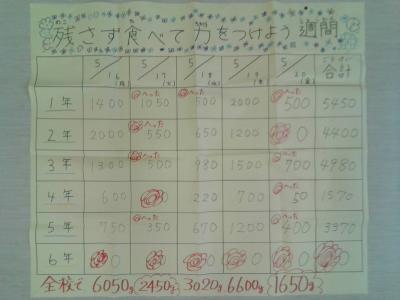 残さず食べて力をつけよう週間
5/16(月) 5/17(火) 5/18(水) 5/19(木) 5/20(金) 合計
1年 1400 へった 1050 へった 500 2000 へった 500 5450
2年 2000 へった 550 650 1200 0 4400
3年 1300 へった 500 980 1500 へった 700 4980
4年 600 0 220 700 へった 50 1570
5年 750 へった 350 670 1200 へった 400 3370
6年 0 0 0 0 0 0
全校で 6050g 2450g 3020g 6600g 1650g